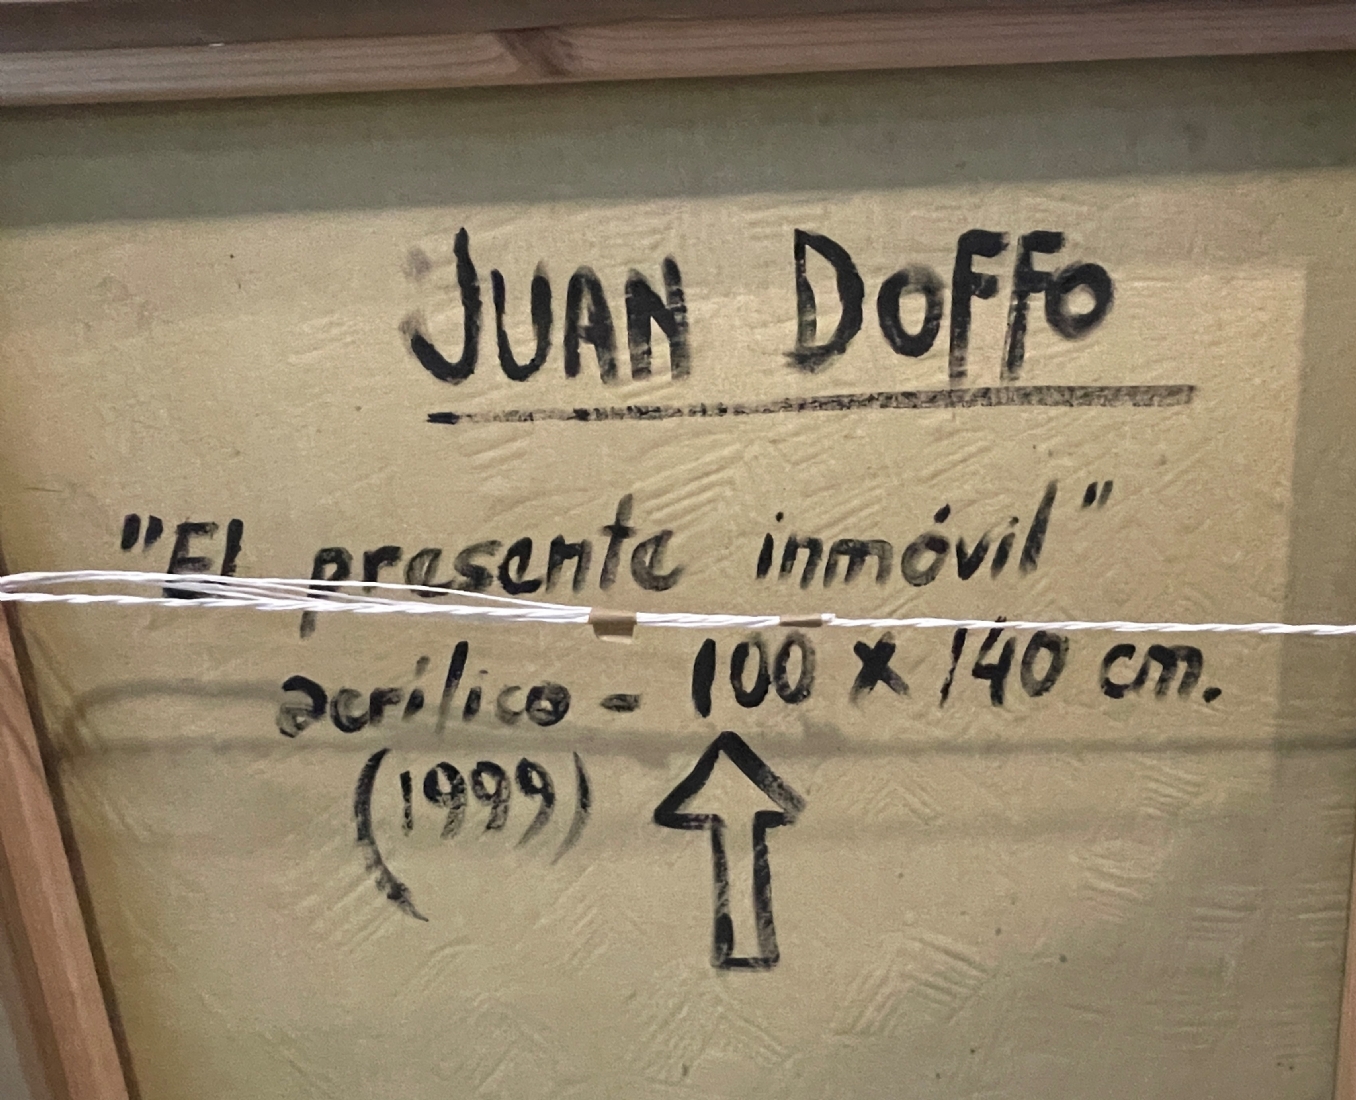 JUAN DOFFO
"El presente inmóvil"
acrílico - 100 x 140 cm.
(1999)